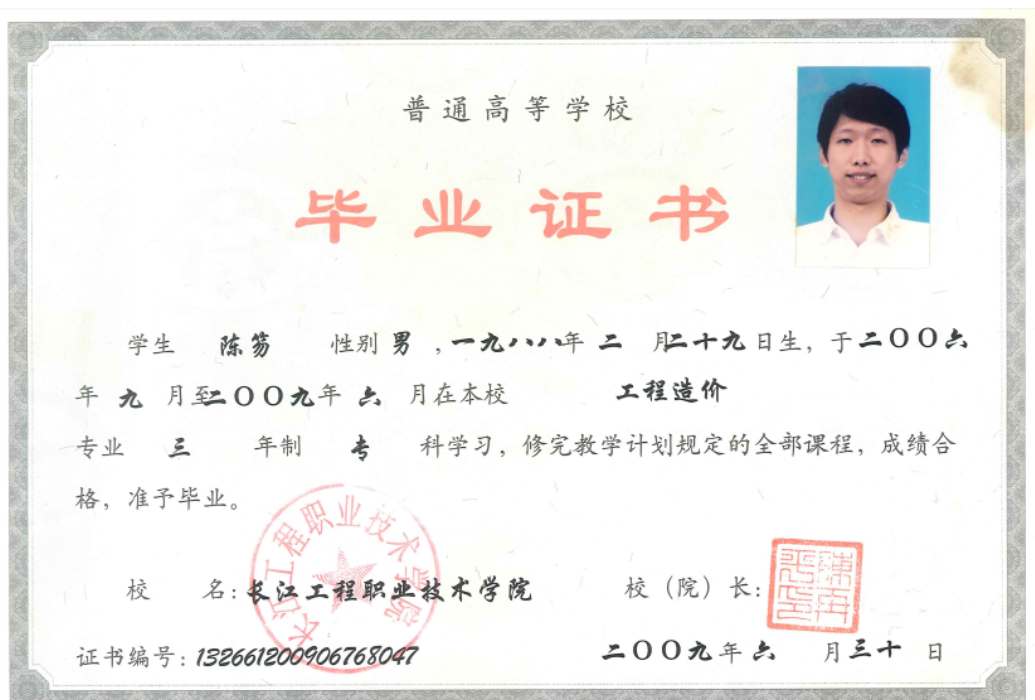 普通高等学校
毕业证书
学生 陈笏 性别 男 ,一九八八年 二 月二十九日生, 于二〇〇六
年 九 月至二〇〇九年 六 月在本校 工程造价
专业 三 年制 专 科学习, 修完教学计划规定的全部课程, 成绩合
格, 准予毕业。
长江工程职业技术学院
校 名: 长江工程职业技术学院 校 (院) 长:
证书编号: 132661200906768047 二〇〇九年 六 月三十 日